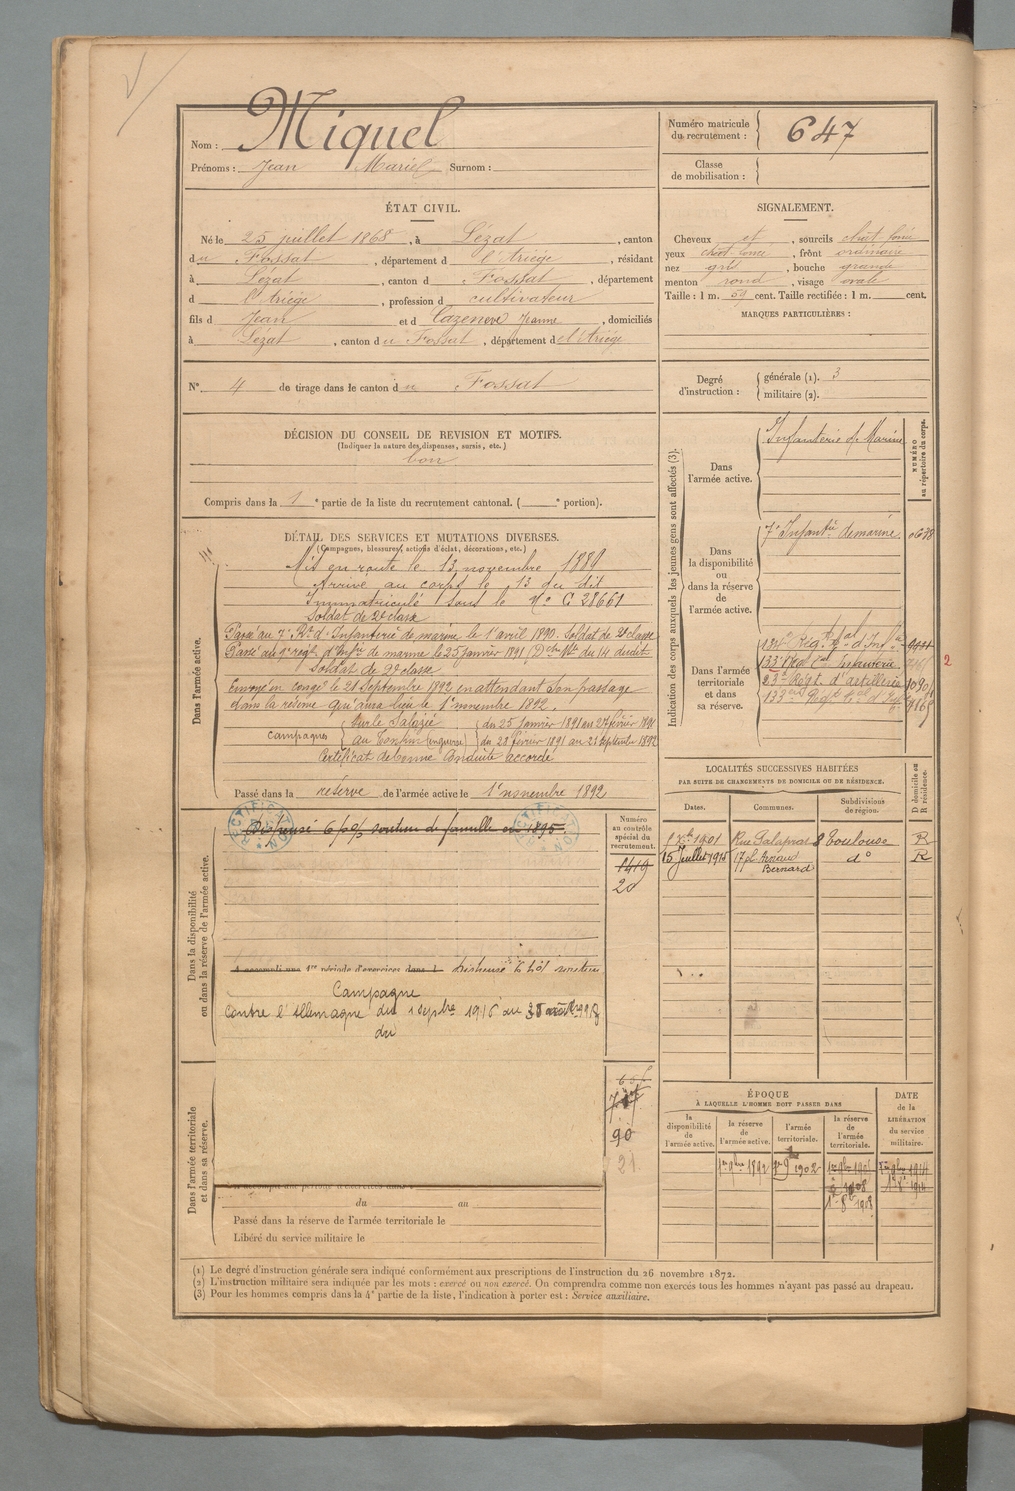 Nom : Miquel
Prénoms : Jean Marie Surnom :
Numéro matricule
du recrutement : 647
Classe
de mobilisation :
ÉTAT CIVIL.
Né le 25 juillet 1868, à Lézat, canton
du Fossat, département d l'Ariège, résidant
à Lézat, canton d Fossat, département
d l'Ariège, profession d cultivateur
fils d Jean et d Cazeneve Jeanne, domiciliés
à Lézat, canton du Fossat, département d el'Ariège
SIGNALEMENT.
Cheveux et, sourcils chat. foncé
yeux chat. foncé, front ordinaire
nez gris, bouche grande
menton rond, visage ovale
Taille : 1 m. 59 cent. Taille rectifiée : 1 m. cent.
MARQUES PARTICULIÈRES :
N° 4 de tirage dans le canton du Fossat
Degré
d'instruction :
générale (1). 3
militaire (2).
DÉCISION DU CONSEIL DE REVISION ET MOTIFS.
(Indiquer la nature des dispenses, sursis, etc.)
bon
Compris dans la 1e partie de la liste du recrutement cantonal. ( e portion).
DÉTAIL DES SERVICES ET MUTATIONS DIVERSES.
(Campagnes, blessures, actions d'éclat, décorations, etc.)
Dans l'armée active.
Mis en route le 13 novembre 1889
Arrivé au corps le 13 du dit
Immatriculé sous le No C 28661
Soldat de 2e classe
Passé au 7e Rt d'Infanterie de marine le 1er avril 1890. Soldat de 2e classe
Passé au 9e régt d'Infie de marine le 25 janvier 1891 du 14 dudit
Soldat de 2e classe
Envoyé en congé le 21 Septembre 1892 en attendant son passage
dans la réserve qui aura lieu le 1er novembre 1892.
Campagnes
Sur le Salazie du 25 Janvier 1891 au 27 février 1891
au Tonkin (en guerre) du 28 février 1891 au 21 septembre 1892
Certificat de bonne Conduite accordé
Passé dans la réserve de l'armée active le 1er novembre 1892
Indication des corps auxquels les jeunes gens sont affectés (3).
NUMÉRO
au répertoire du corps.
Dans
l'armée active.
Infanterie de Marine
Dans
la disponibilité
ou
dans la réserve
de l'armée
active.
7e Infantie de marine
Dans l'armée
territoriale
et dans
sa réserve.
134e Régt tal d'Infie
133e Régt tal Infanterie
2
23e Régt d'artillerie
133e Régt tal d'Infie
LOCALITÉS SUCCESSIVES HABITÉES
PAR SUITE DE CHANGEMENTS DE DOMICILE OU DE RÉSIDENCE.
D domicile ou
R résidence.
Dates.
Communes.
Subdivisions
de région.
1901 Rue Palaprat 8 Toulouse R
15 Juillet 1915 17 pl. Arnaud
Bernard do R
Dans la disponibilité
ou dans la réserve de l'armée active.
RECTIFICATION
RECTIFICATION
Dispensé 6 p% soutien de famille en 1895.
Numéro
au contrôle
spécial du
recrutement.
1419
20
A accompli une 1re période d'exercices dans l Dispensé 6 % soutien
Campagne
Contre l'Allemagne du 1 Septbre 1915 au
du
Dans l'armée territoriale
et dans sa réserve.
90
21
du au
Passé dans la réserve de l'armée territoriale le
Libéré du service militaire le
ÉPOQUE
À LAQUELLE L'HOMME DOIT PASSER DANS
la
disponibilité
de
l'armée active.
la réserve
de
l'armée active.
l'armée
territoriale.
la réserve
de
l'armée
territoriale.
DATE
de la
LIBÉRATION
du service
militaire.
1er 9bre 1892
1902
1908
1914
(1) Le degré d'instruction générale sera indiqué conformément aux prescriptions de l'instruction du 26 novembre 1872.
(2) L'instruction militaire sera indiquée par les mots : exercé ou non exercé. On comprendra comme non exercés tous les hommes n'ayant pas passé au drapeau.
(3) Pour les hommes compris dans la 4e partie de la liste, l'indication à porter est : Service auxiliaire.